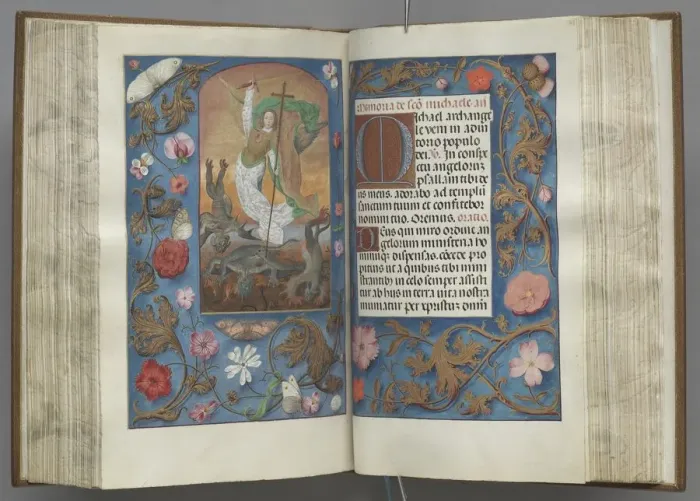 Memoria de scõ michaele ar
Michael archange
le veni in adiu
torio populo
dei. V. In conspe
ctu angelorum
psallam tibi de
us meus. adorabo ad templū
sanctum tuum et confitebor
nomini tuo. Oremus. oratio.
Deus qui miro ordine an
gelorum ministeria ho
minūqꝫ dispensas. cōcede pro
pitius ut a quibus tibi mini
strantibus in celo semper assisti
tur ab hiis in terra vita nostra
muniatur per xpistum dnm̄